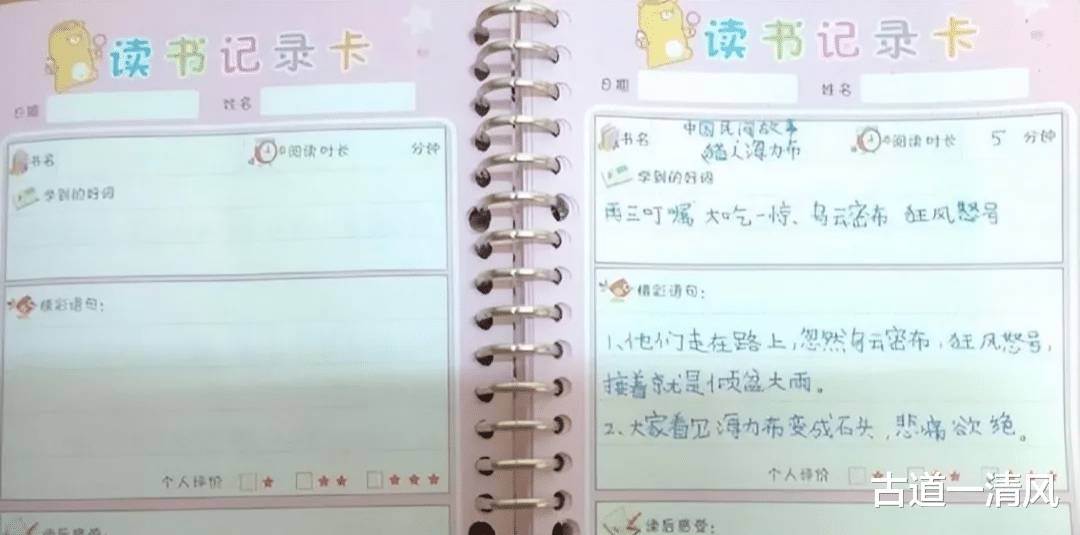 读书记录卡
日期 姓名
书名 阅读时长 分钟
学到的好词
精彩语句：
个人评价
读后感觉：
读书记录卡
日期 姓名
书名 中国民间故事 阅读时长 5 分钟
猎人海力布
学到的好词
再三叮嘱 大吃一惊、乌云密布 狂风怒号
精彩语句：
1、他们走在路上，忽然乌云密布，狂风怒号，
接着就是倾盆大雨。
2、大家看见海力布变成石头，悲痛欲绝。
个人评价
读后感觉：
古道一清风